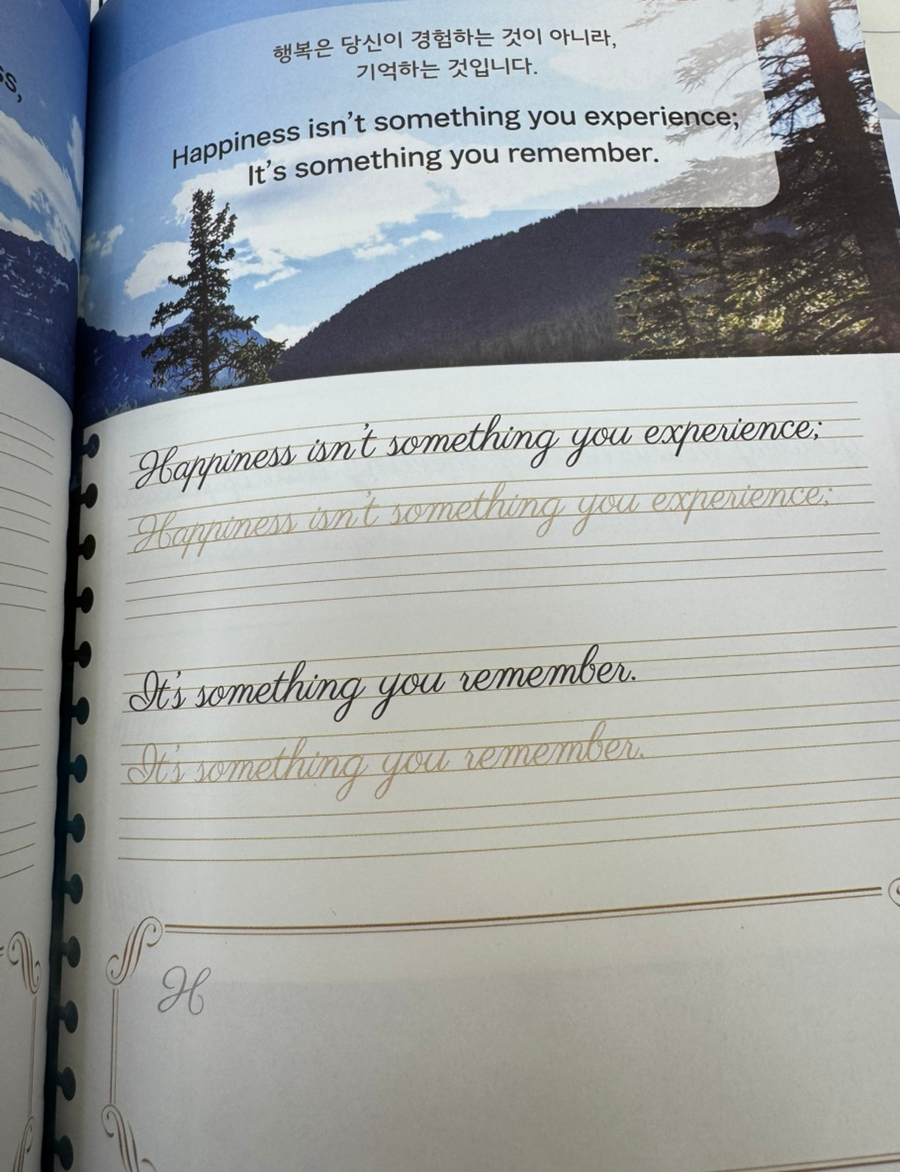 ss,
행복은 당신이 경험하는 것이 아니라,
기억하는 것입니다.
Happiness isn't something you experience;
It's something you remember.
Happiness isn't something you experience;
Happiness isn't something you experience;
It's something you remember.
It's something you remember.
H